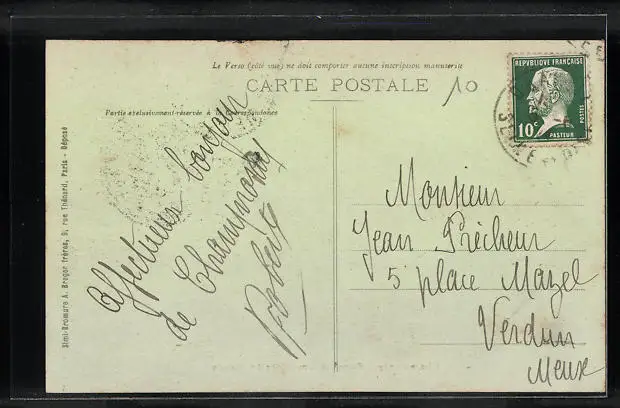 Le Verso (côté vue) ne doit comporter aucune inscription manuscrite
CARTE POSTALE
10
Partie exclusivement réservée à la Correspondance
Simi-Bromure A. Breger frères, 9, rue Thénard, Paris - Déposé
Affectueux bonjour
de Champrosay
REPUBLIQUE FRANÇAISE
10c
POSTES
PASTEUR
SEINE
Monsieur
Jean Précheur
5 place Mazel
Verdun
Meuse